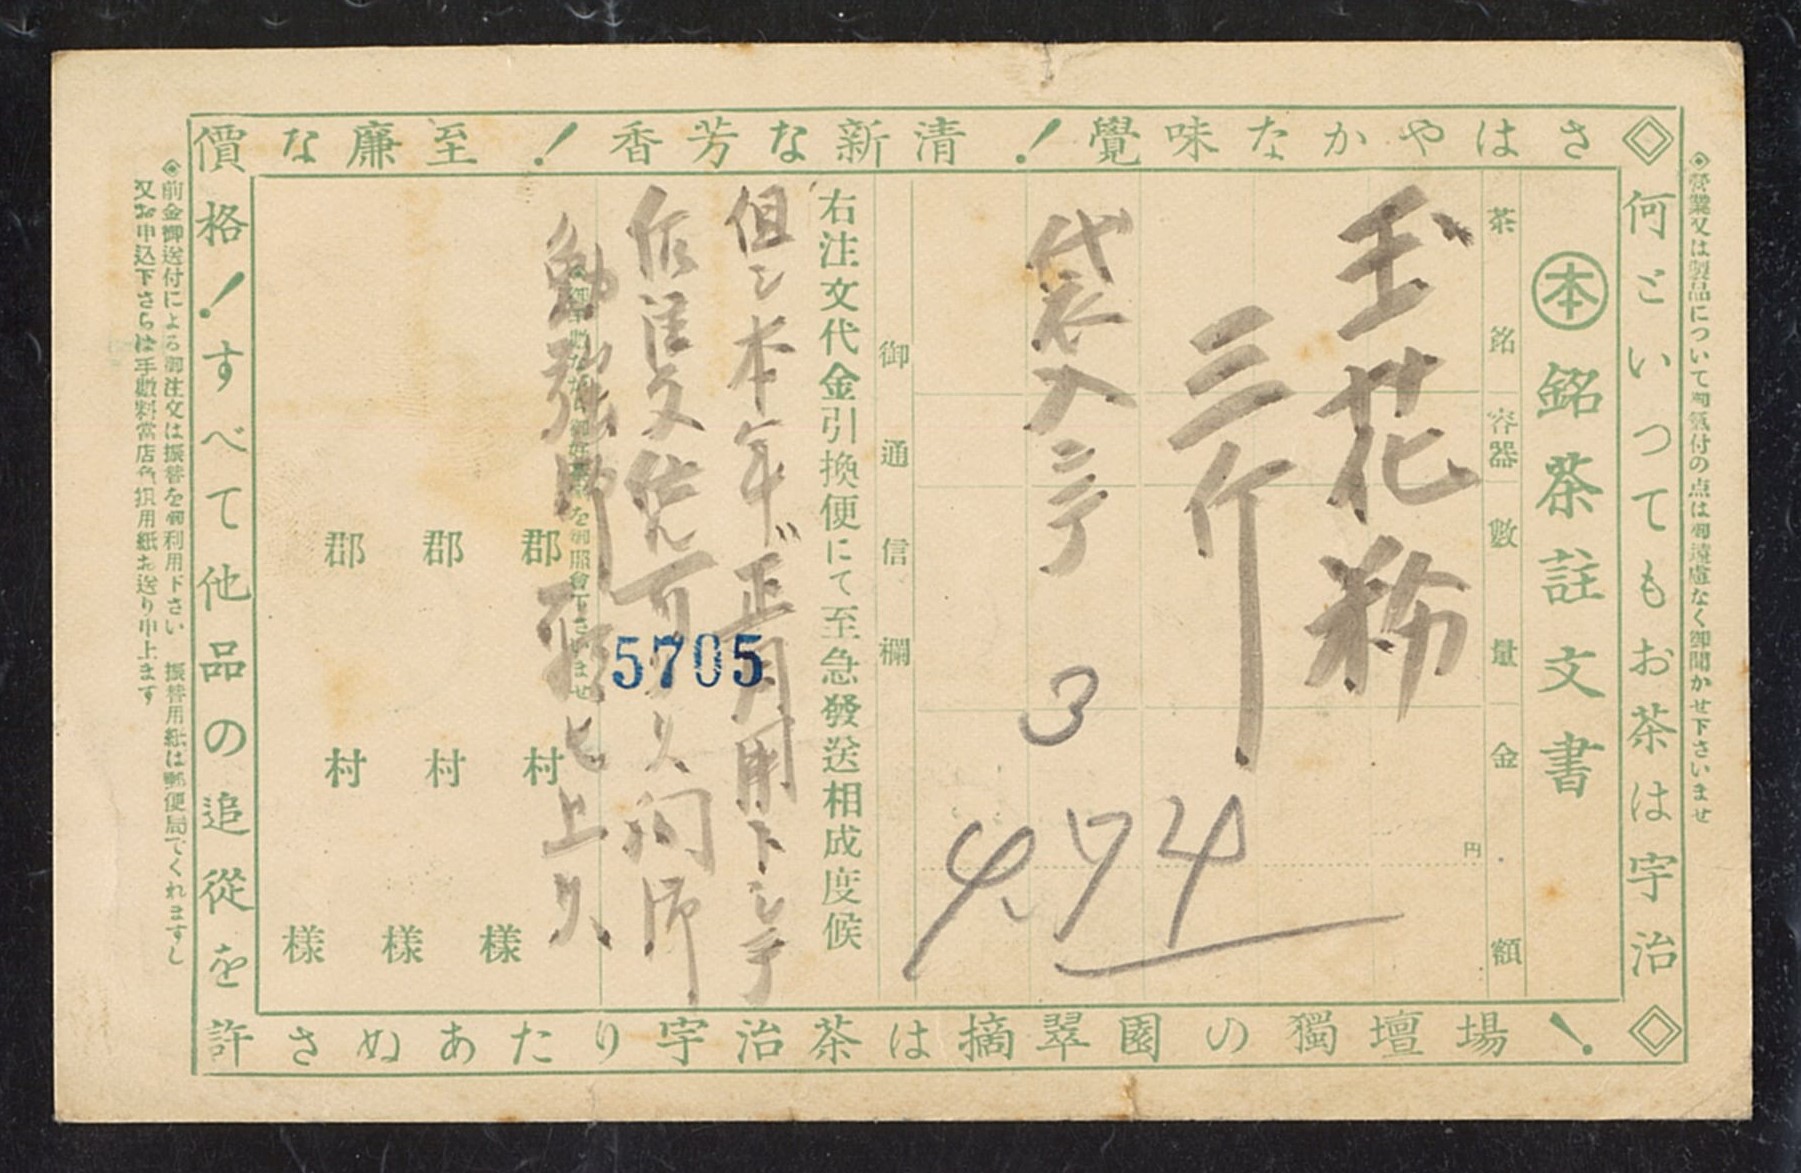 ◈営業又は製品について御気付の点は御遠慮なく御聞かせ下さいませ
何といつてもお茶は宇治
さはやかな味覺！清新な芳香！至廉な價
格！すべて他品の追從を
許さぬあたり宇治茶は摘翠園の獨壇場！
本 銘茶註文書
茶銘 容器 數量 金額
円
玉花粉
三斤
袋入
3
474
御通信欄
右注文代金引換便にて至急發送相成度候
但シ本年正月用トシテ
佐注文
勉強
上
5705
を御照會下さいませ
郡 村 様
郡 村 様
郡 村 様
◈前金御送付による御注文は振替を御利用下さい 振替用紙は郵便局でくれますし
又お申込下さらば手數料當店負担用紙お送り申上ます